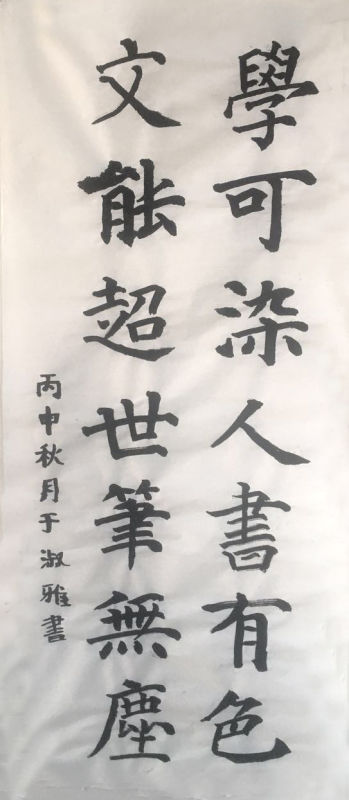 學可染人書有色
文能超世筆無塵
丙申秋月于淑雅書